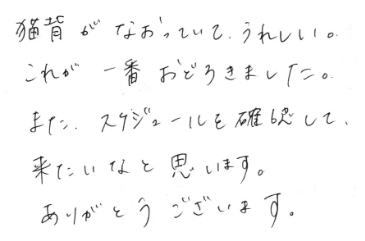 猫背がなおっていて、うれしい。
これが一番おどろきました。
また、スケジュールを確認して、
来たいなと思います。
ありがとうございます。